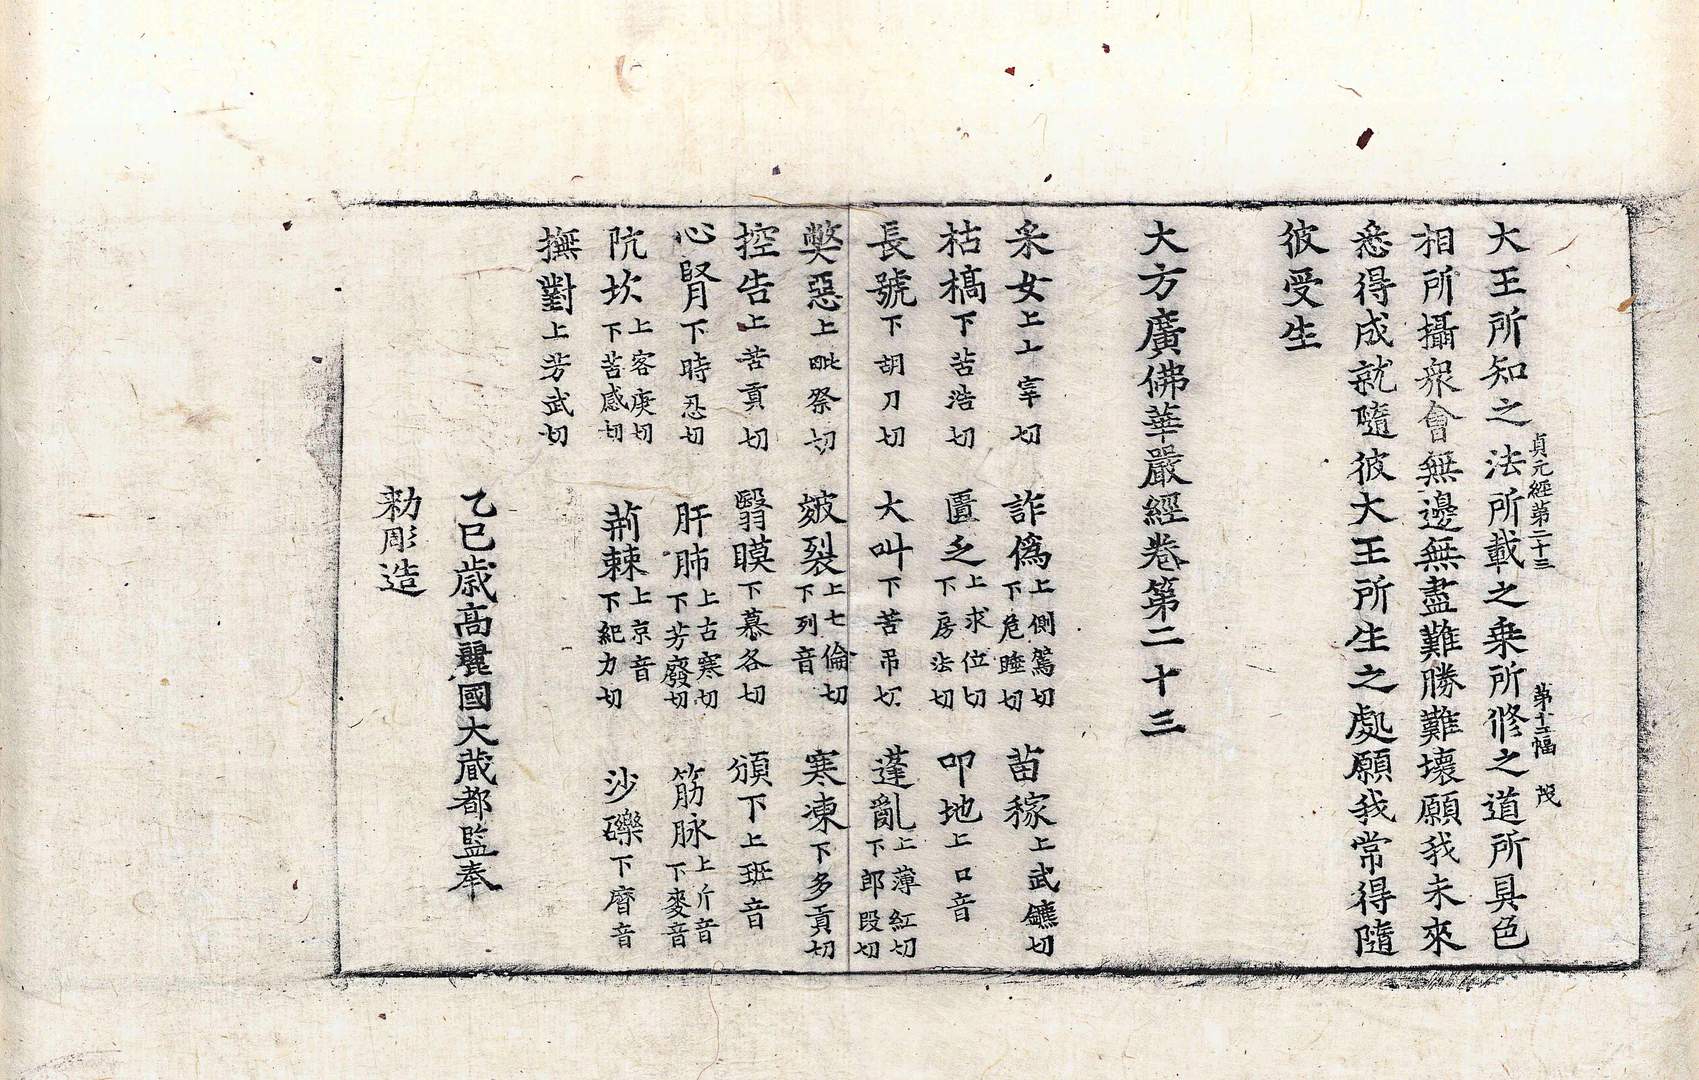 大王所知之法所載之乗所修之道所具色
貞元經第二十三 第十三幅 茂
相所攝衆會無邊無盡難勝難壞願我未來
悉得成就隨彼大王所生之處願我常得隨
彼受生
大方廣佛華嚴經卷第二十三
采女上上宰切 詐僞上側駕切下危睡切 苗稼上武鑣切
枯槁下苦浩切 匱乏上求位切下房法切 叩地上口音
長號下胡刀切 大叫下苦吊切 蓬亂上薄紅切下郎段切
弊惡上毗祭切 皴裂上七倫切下列音 寒凍下多貢切
控告上苦貢切 翳瞙下慕各切 頒下上班音
心腎下時忍切 肝肺上古寒切下芳廢切 筋脉上斤音下麥音
阬坎上客庚切下苦感切 荊棘上京音下紀力切 沙礫下曆音
撫對上芳武切
乙巳歳高麗國大藏都監奉
勑彫造